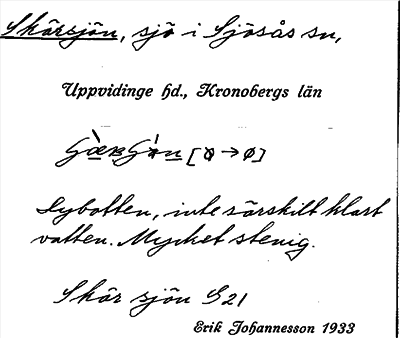 Skärsjön, sjö i Sjösås sn,
Uppvidinge hd., Kronobergs län
[ɵ → ø]
Dybotten, inte särskilt klart
vatten. Mycket stenig.
Skär sjön S 21
Erik Johannesson 1933